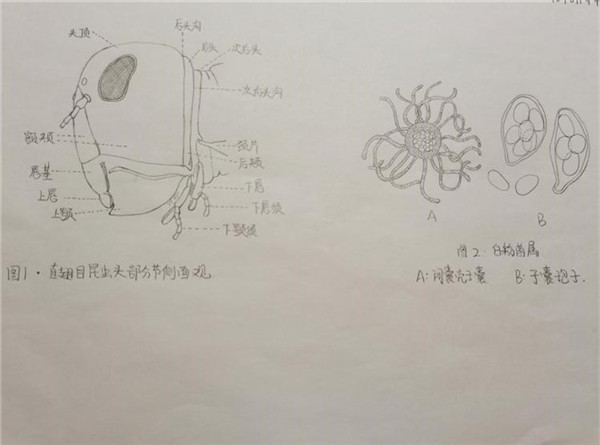 头顶
后头沟
后头
次后头
次后头沟
额颊
颈片
后颊
唇基
下唇
上唇
下唇须
上颚
下颚须
图1. 直翅目昆虫头部分节侧面观
A
B
图2. 白粉菌属
A: 闭囊壳子囊 B: 子囊孢子.